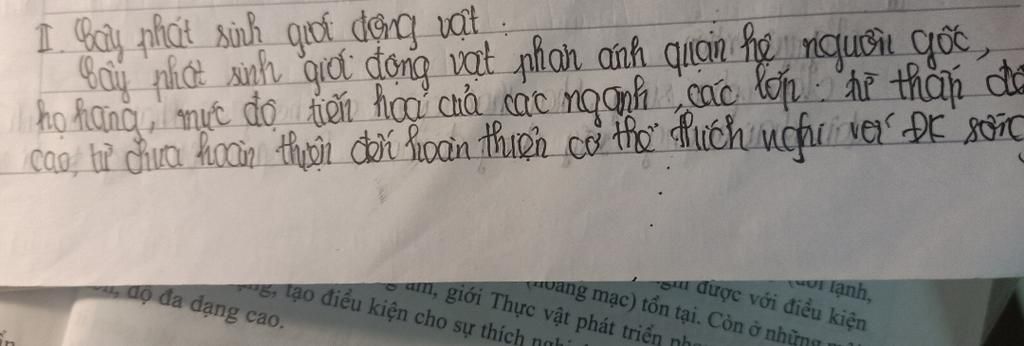 II. Cây phát sinh giới động vật :
Cây phát sinh giới động vật phản ánh quan hệ nguồn gốc,
họ hàng, mức độ tiến hoá của các ngành, các lớp: từ thấp đến
cao, từ chưa hoàn thiện đến hoàn thiện cơ thể thích nghi với ĐK sống
(hoang mạc) tồn tại. Còn ở những
được với điều kiện
lạnh,
ẩm, giới Thực vật phát triển
tạo điều kiện cho sự thích
độ đa dạng cao.